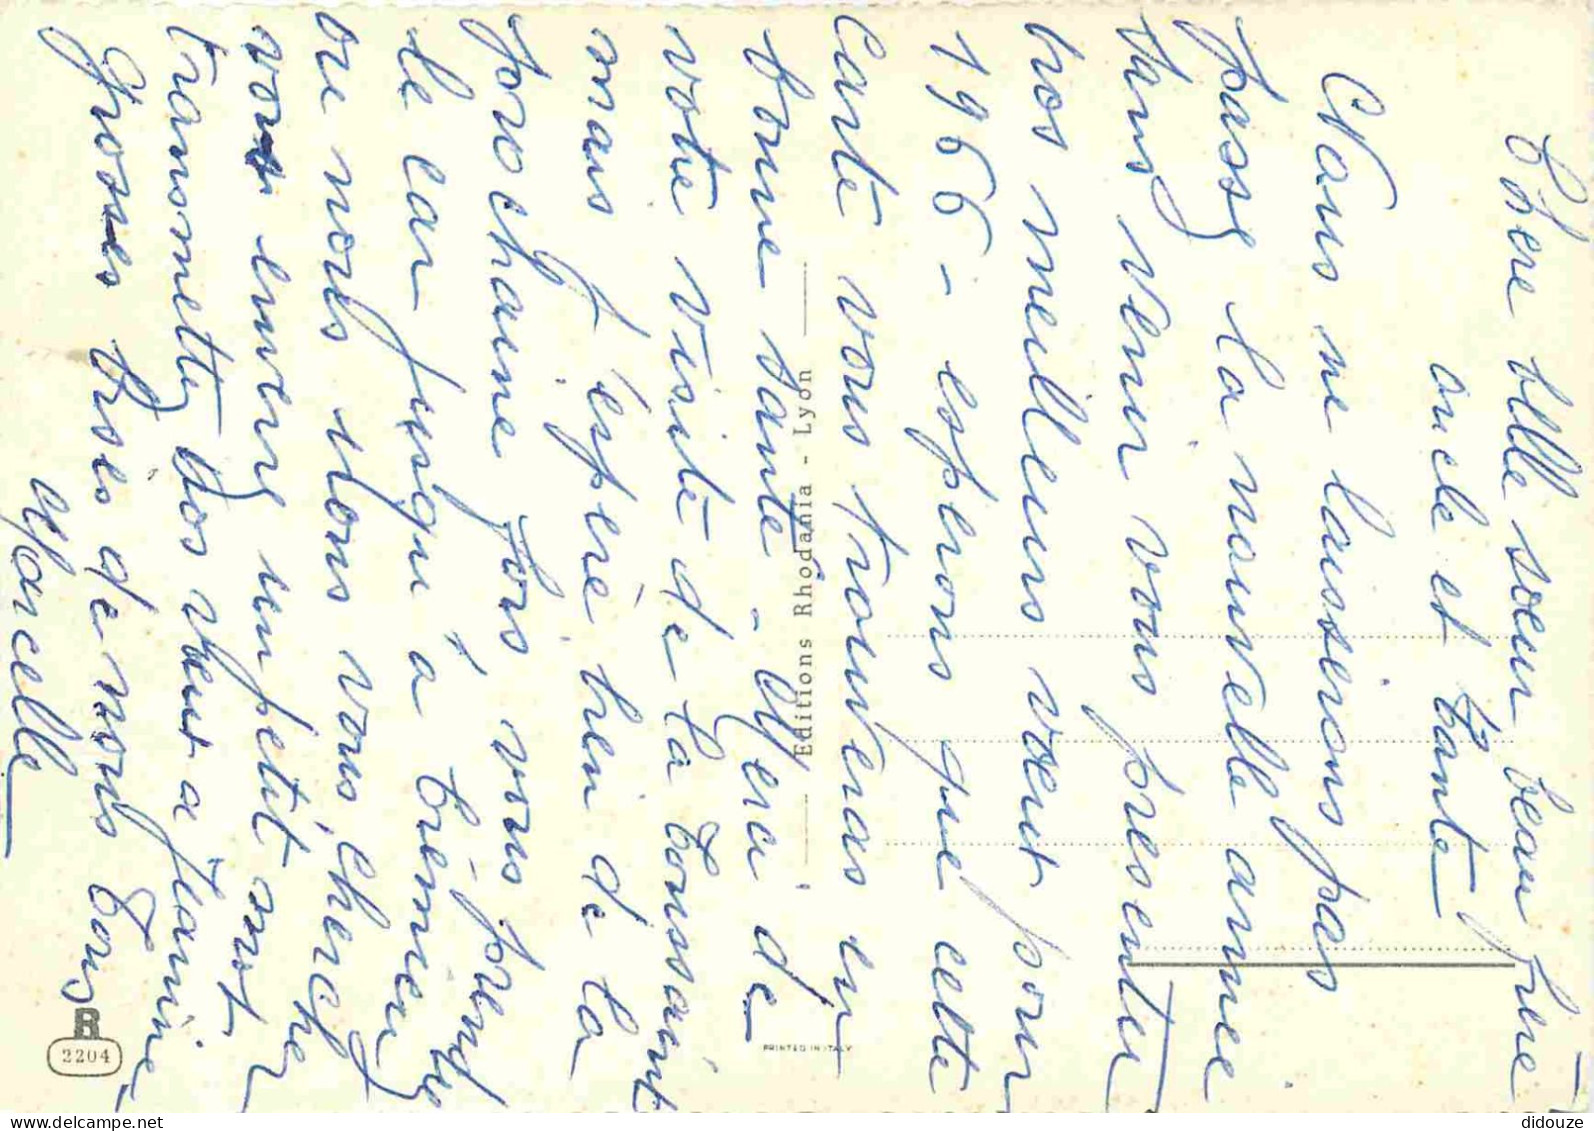 Chère belle sœur beau frère
oncle et tante
Nous ne laisserons pas
passe la nouvelle année
sans venir vous presenter
nos meilleurs vœux pour
1966 - esperons que cette
Carte vous trouveras en
bonne santé - Merci de
votre visite de la toussaint
mais j'espère bien de la
prochaine fois vous prendre
le car jusqu'a Trémeu
ou nous irons vous cherche
vous envoye un petit mot
transmettez vos vœux a Jeannine
Grosses Bises de nous tous
Marcelle
Editions Rhodania - Lyon
PRINTED IN ITALY
R
2204
didouze